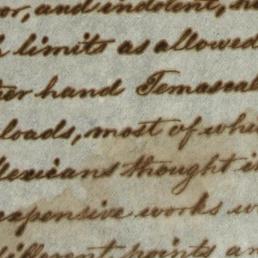 or, and indolent,
limits as allowed
her hand Temascal
loads, most of whi
Mexicans thought i
expensive works w
different points an